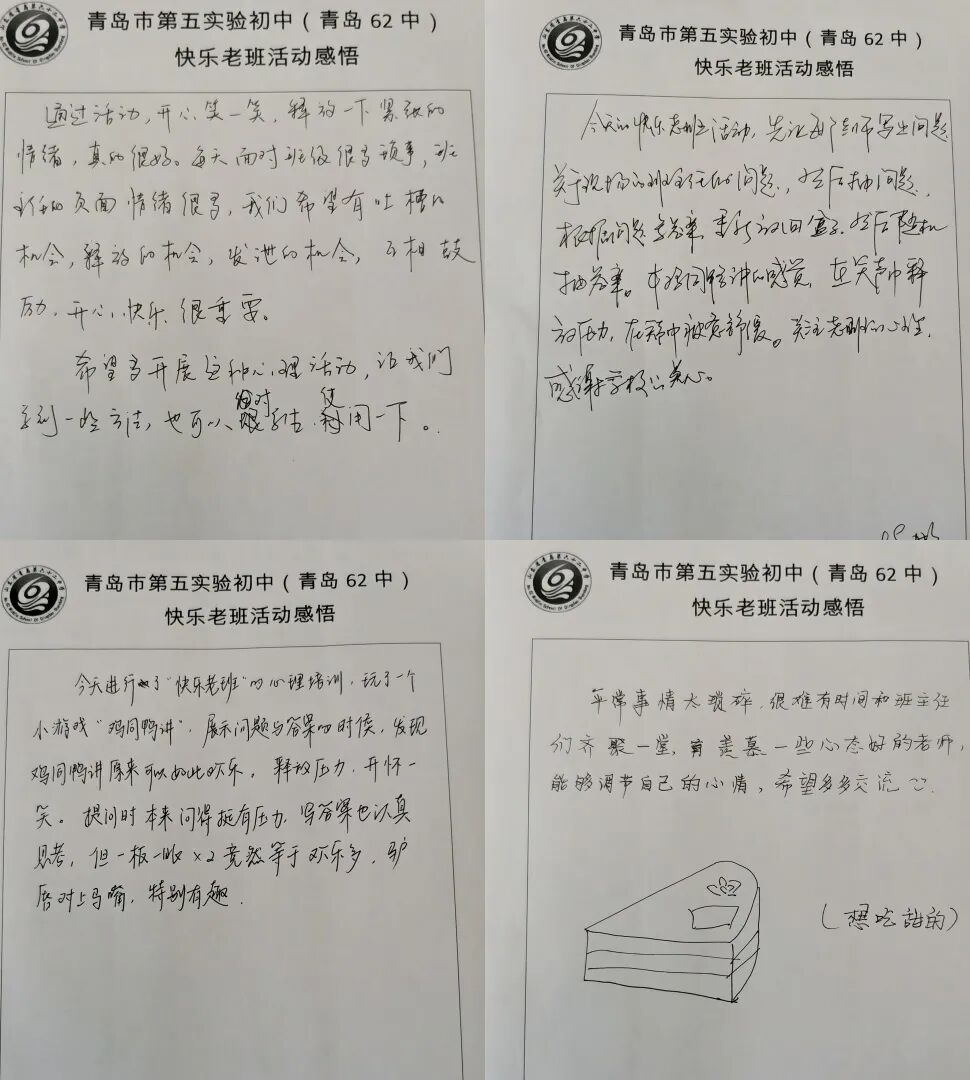 青岛市第五实验初中（青岛 62 中）
快乐老班活动感悟
通过活动，开心笑一笑，释放一下紧张的
情绪，真的很好。每天面对班级很多琐事，班
主任的负面情绪很多，我们希望有吐槽的
机会，释放的机会，发泄的机会，互相鼓
励，开心快乐很重要。
希望多开展这种心理活动，让我们
学到一些方法，也可以 对学生 使用一下。
青岛市第五实验初中（青岛 62 中）
快乐老班活动感悟
今天的快乐老班活动，先让每个老师写出问题
关于现场的班主任的问题，然后抽问题，
根据问题写答案，重新放回盒子，然后随机
抽答案。有鸡同鸭讲的感觉，在笑声中释
放压力，在 中被 舒缓。关注老师的心理，
感谢学校的关心。
青岛市第五实验初中（青岛 62 中）
快乐老班活动感悟
今天进行了"快乐老班"的心理培训，玩了一个
小游戏"鸡同鸭讲"，展示问题与答案的时候，发现
鸡同鸭讲原来可以如此欢乐，释放压力，开怀一
笑。提问时本来问得挺有压力，写答案也认真
思考，但一板一眼×2竟然等于欢乐多，驴
唇对上马嘴，特别有趣.
青岛市第五实验初中（青岛 62 中）
快乐老班活动感悟
平常事情太琐碎，很难有时间和班主任
们齐聚一堂，有羡慕一些心态好的老师，
能够调节自己的心情，希望多多交流
（想吃甜的）